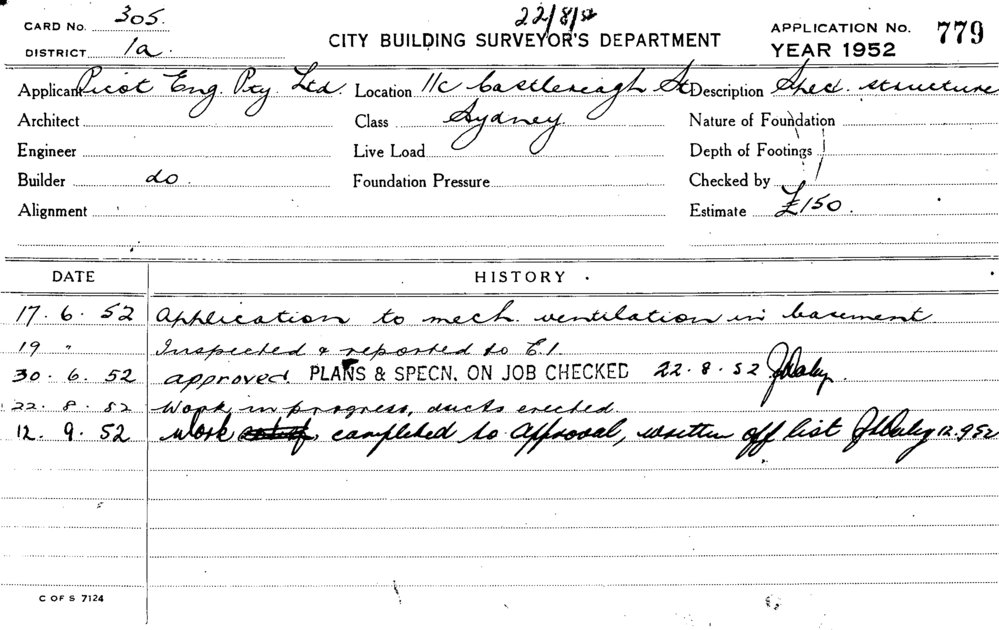 22/8/52
CARD No. 305.
DISTRICT 1a.
CITY BUILDING SURVEYOR'S DEPARTMENT
APPLICATION No. 779
YEAR 1952
Applicant Picot Eng. Pty Ltd. Location 11c Castlereagh St Description Spec. structure
Architect Class Sydney. Nature of Foundation
Engineer Live Load Depth of Footings
Builder do. Foundation Pressure Checked by
Alignment Estimate £150.
DATE HISTORY
17. 6. 52 Application to mech. ventilation in basement
19 " Inspected & reported to E.I.
30. 6. 52 approved. PLANS & SPECN. ON JOB CHECKED 22. 8. 52 JDaley.
22. 8. 52 Work in progress, ducts erected.
12. 9. 52 Work completed to Approval, written off list JDaley 12.9.52
C OF S 7124